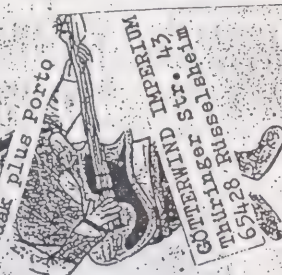 plus Porto
GÖTTERWIND IMPERIUM
Thüringer Str. 43
65428 Rüsselsheim